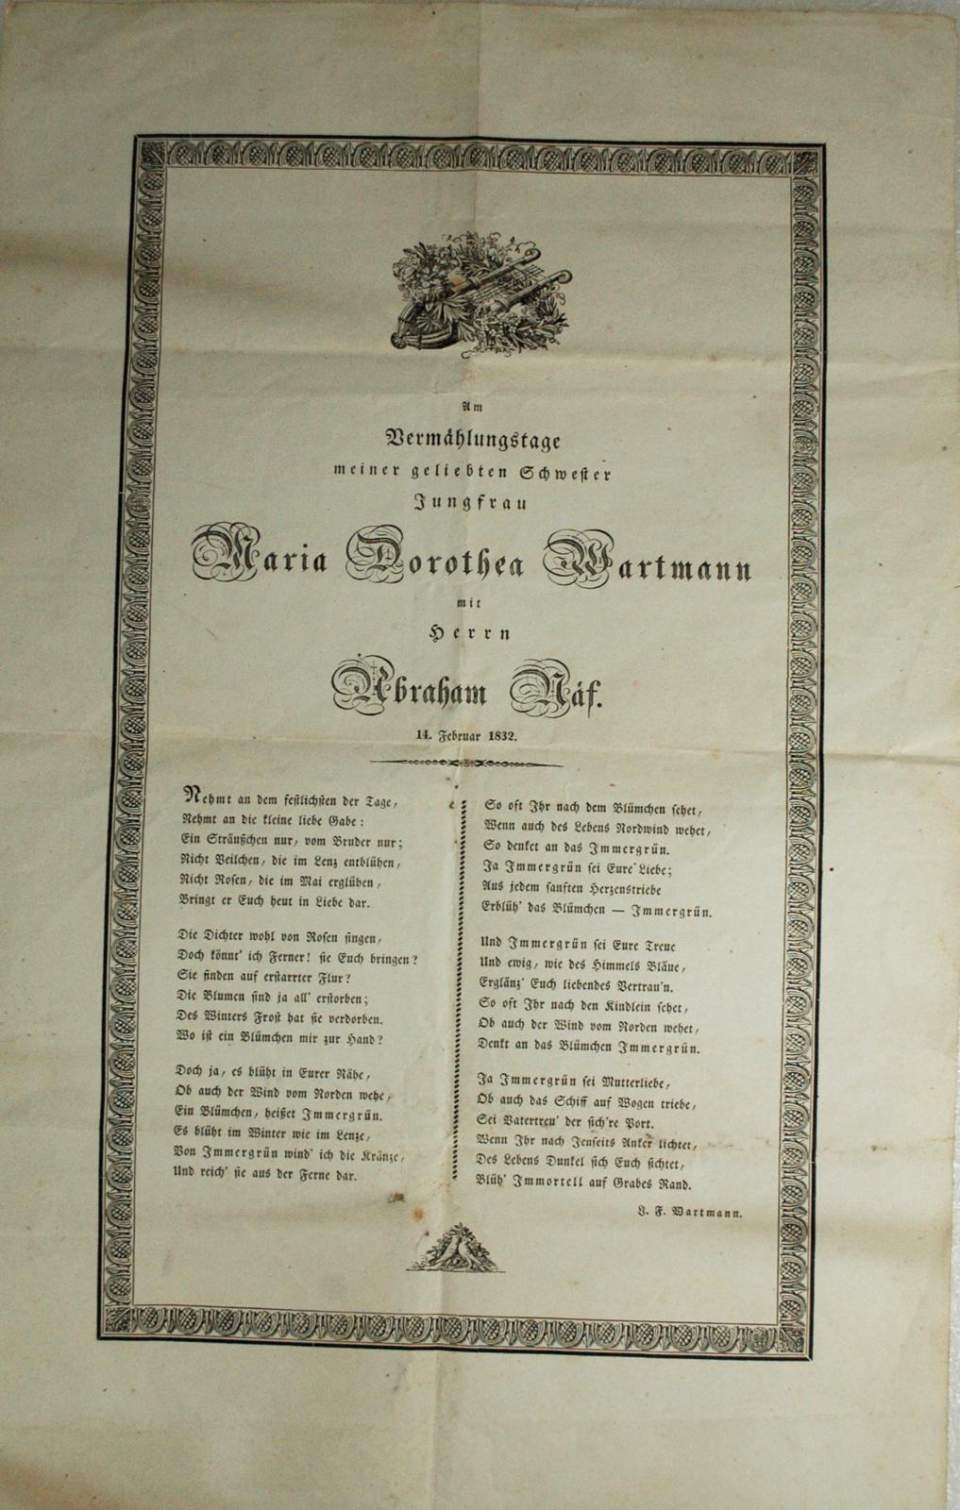 Am
Vermählungstage
meiner geliebten Schwester
Jungfrau
Maria Dorothea Wartmann
mit
Herrn
Abraham Näf.
14. Februar 1832.
Nehmt an dem festlichsten der Tage,
Nehmt an die kleine liebe Gabe:
Ein Sträußchen nur, vom Bruder nur;
Nicht Veilchen, die im Lenz entblühen,
Nicht Rosen, die im Mai erglühen,
Bringt er Euch heut in Liebe dar.
Die Dichter wohl von Rosen singen,
Doch könnt' ich Ferner! sie Euch bringen?
Sie finden auf erstarrter Flur?
Die Blumen sind ja all' erstorben;
Des Winters Frost hat sie verdorben.
Wo ist ein Blümchen mir zur Hand?
Doch ja, es blüht in Eurer Nähe,
Ob auch der Wind vom Norden wehe,
Ein Blümchen, heißet Immergrün.
Es blüht im Winter wie im Lenze,
Von Immergrün wind' ich die Kränze,
Und reich' sie aus der Ferne dar.
So oft Ihr nach dem Blümchen sehet,
Wenn auch des Lebens Nordwind wehet,
So denket an das Immergrün.
Ja Immergrün sei Eure Liebe;
Aus jedem sanften Herzenstriebe
Erblüh' das Blümchen — Immergrün.
Und Immergrün sei Eure Treue
Und ewig, wie des Himmels Bläue,
Erglänz' Euch liebendes Vertrau'n.
So oft Ihr nach den Kindlein sehet,
Ob auch der Wind vom Norden wehet,
Denkt an das Blümchen Immergrün.
Ja Immergrün sei Mutterliebe,
Ob auch das Schiff auf Wogen triebe,
Sei Vatertreu' der sich're Port.
Wenn Ihr nach Jenseits Anker lichtet,
Des Lebens Dunkel sich Euch sichtet,
Blüh' Immortell auf Grabes Rand.
F. Wartmann.